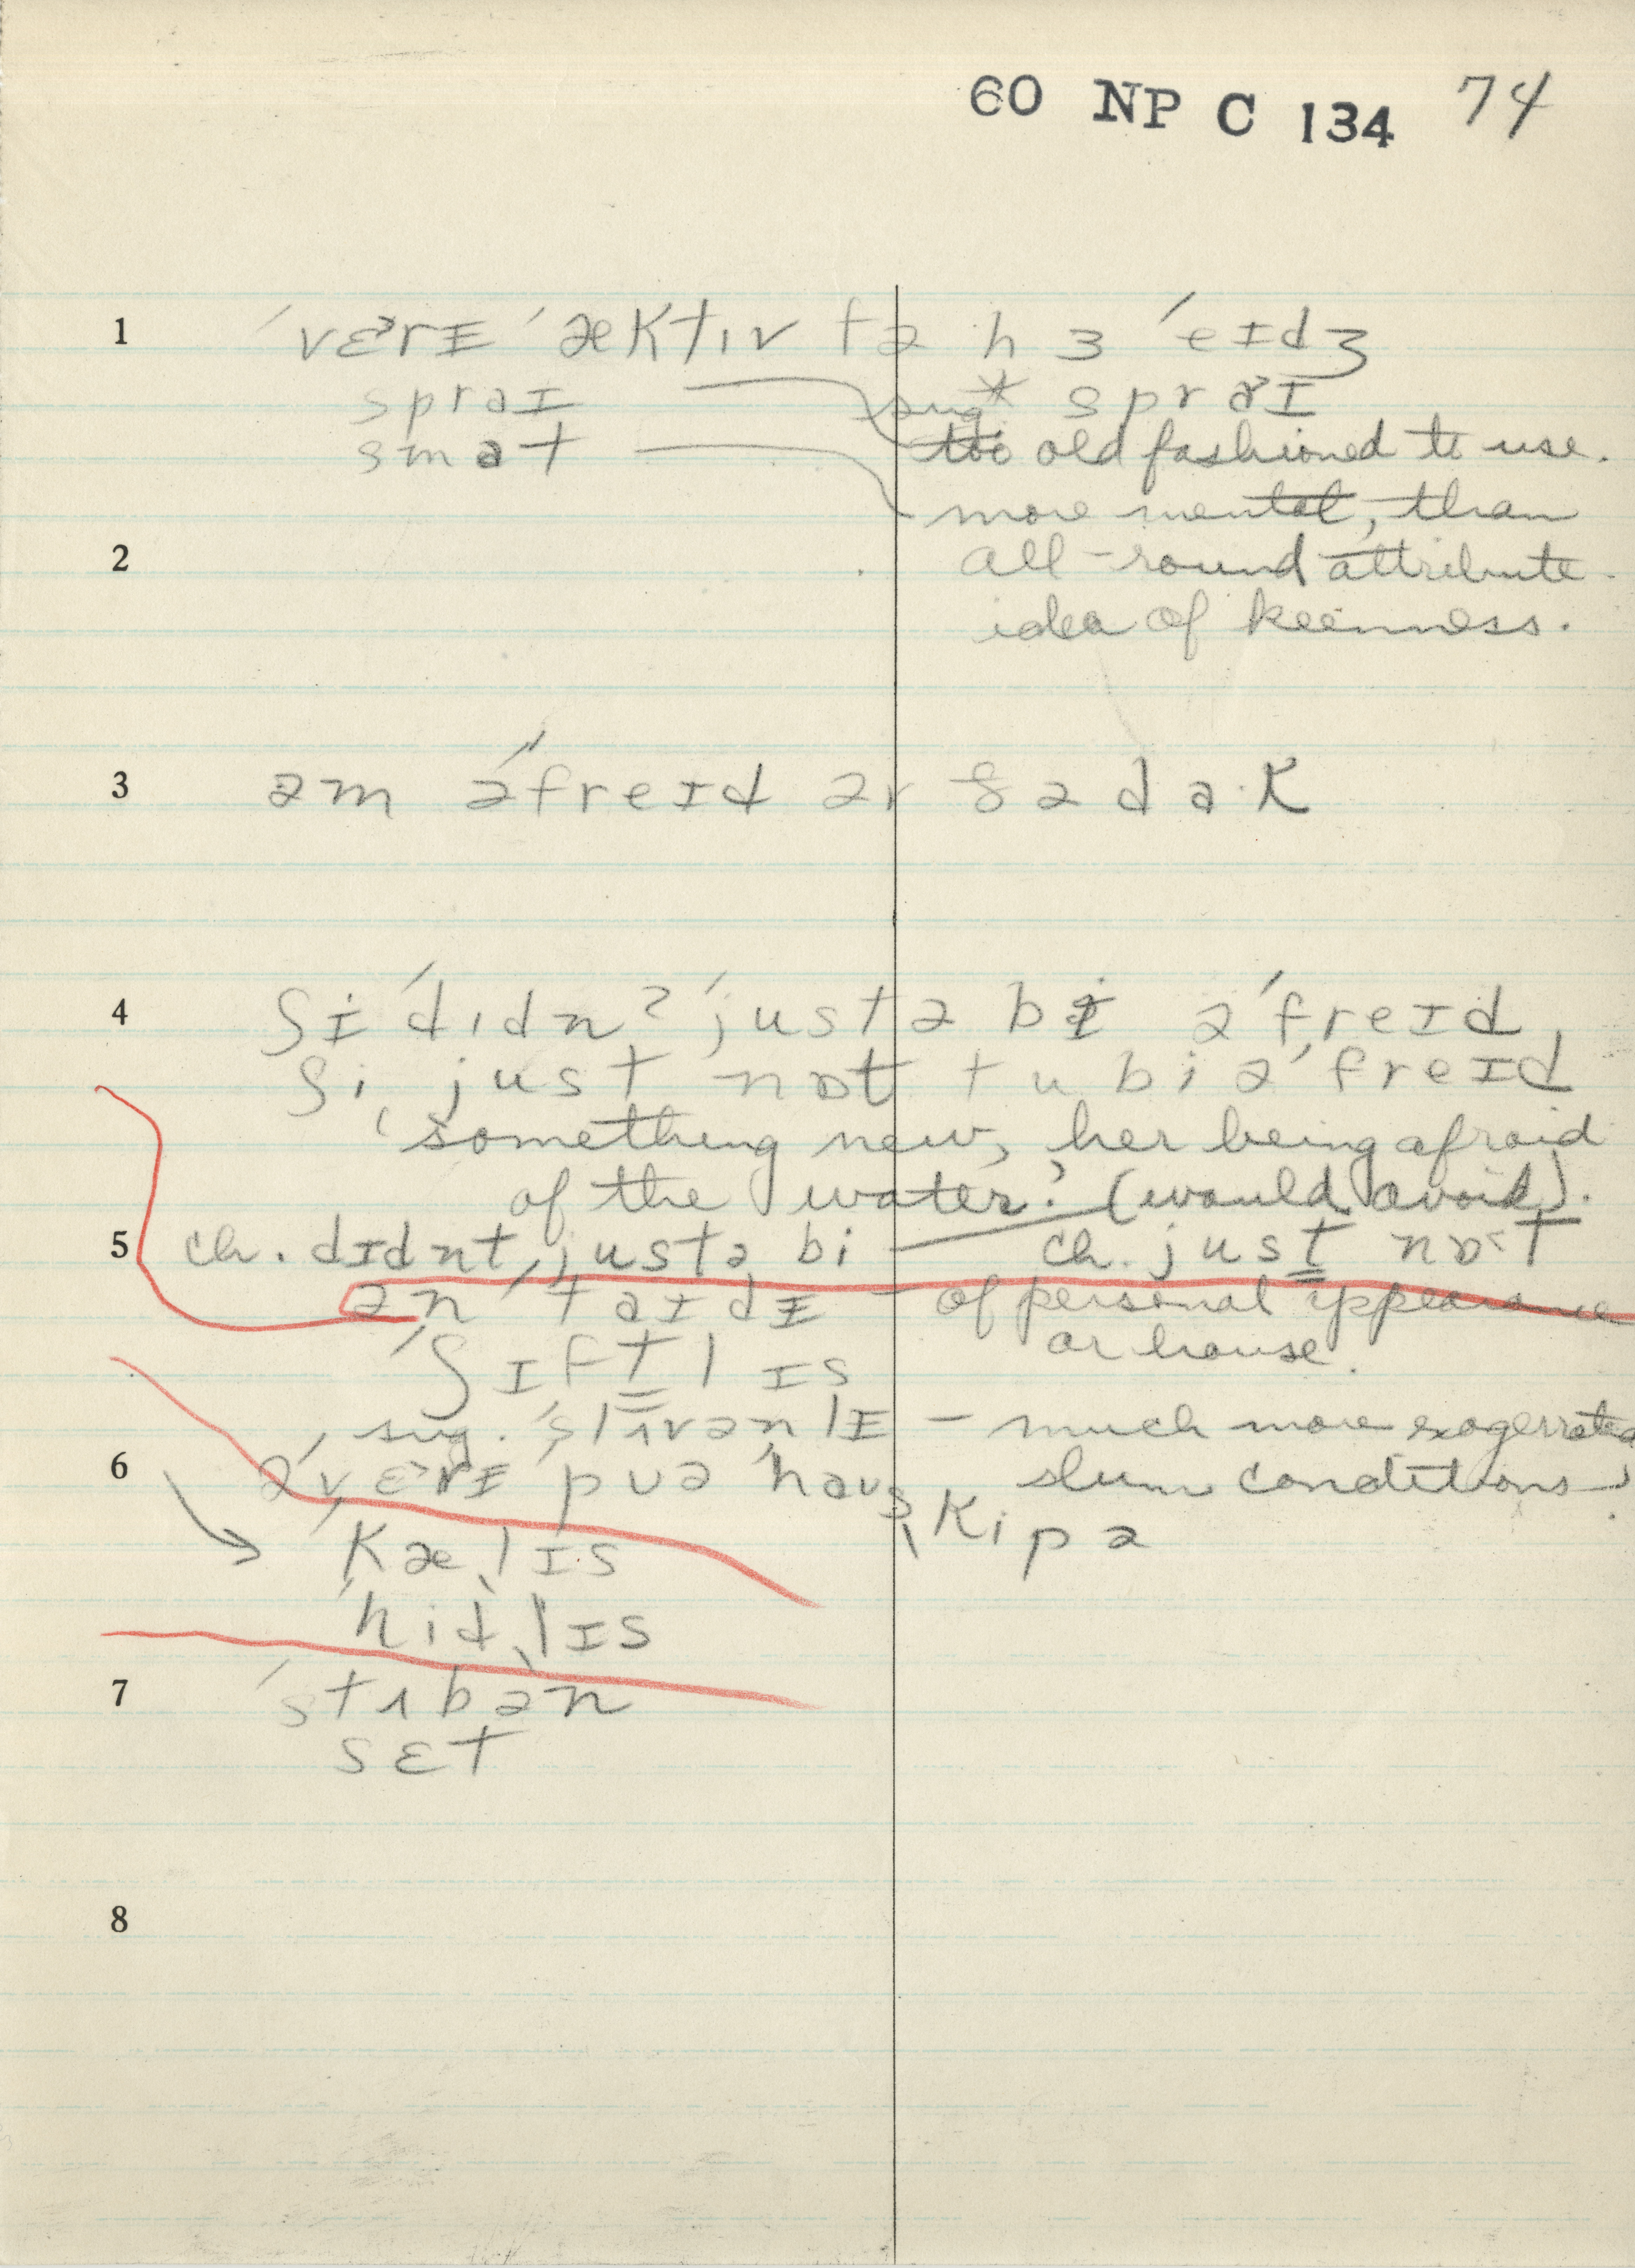 60 NP C 134 74
1 ˈvɛˑrɪ ˈæktɪv fə hɜ ˈeɪdʒ
spraɪ sug* spraɪ
smat too old fashioned to use.
more mental, than
2 all-round attribute.
idea of keenness.
3 əm əˈfreɪd əv ðə daˑk
4 ʃɪ ˈdɪdnʔ ˈjustə bɪ əˈfreɪd
ʃi just nɒt tu bi əˈfreɪd
something new, her being afraid
of the water? (would avoid).
5 ch. dɪdnt justə bi — ch. just nɒˑt
ənˈtaɪdɪ – of personal appearance
ˈʃɪftlɪs or house.
sug. ˈslʌvənlɪ – much more exagerrated
6 əˈvɛˑrɪ ˈpʊə ˈhaʊsˌkipə slum conditions.
ˈkælɪs
ˈhidlɪs
7 ˈstʌbən
sɛt
8